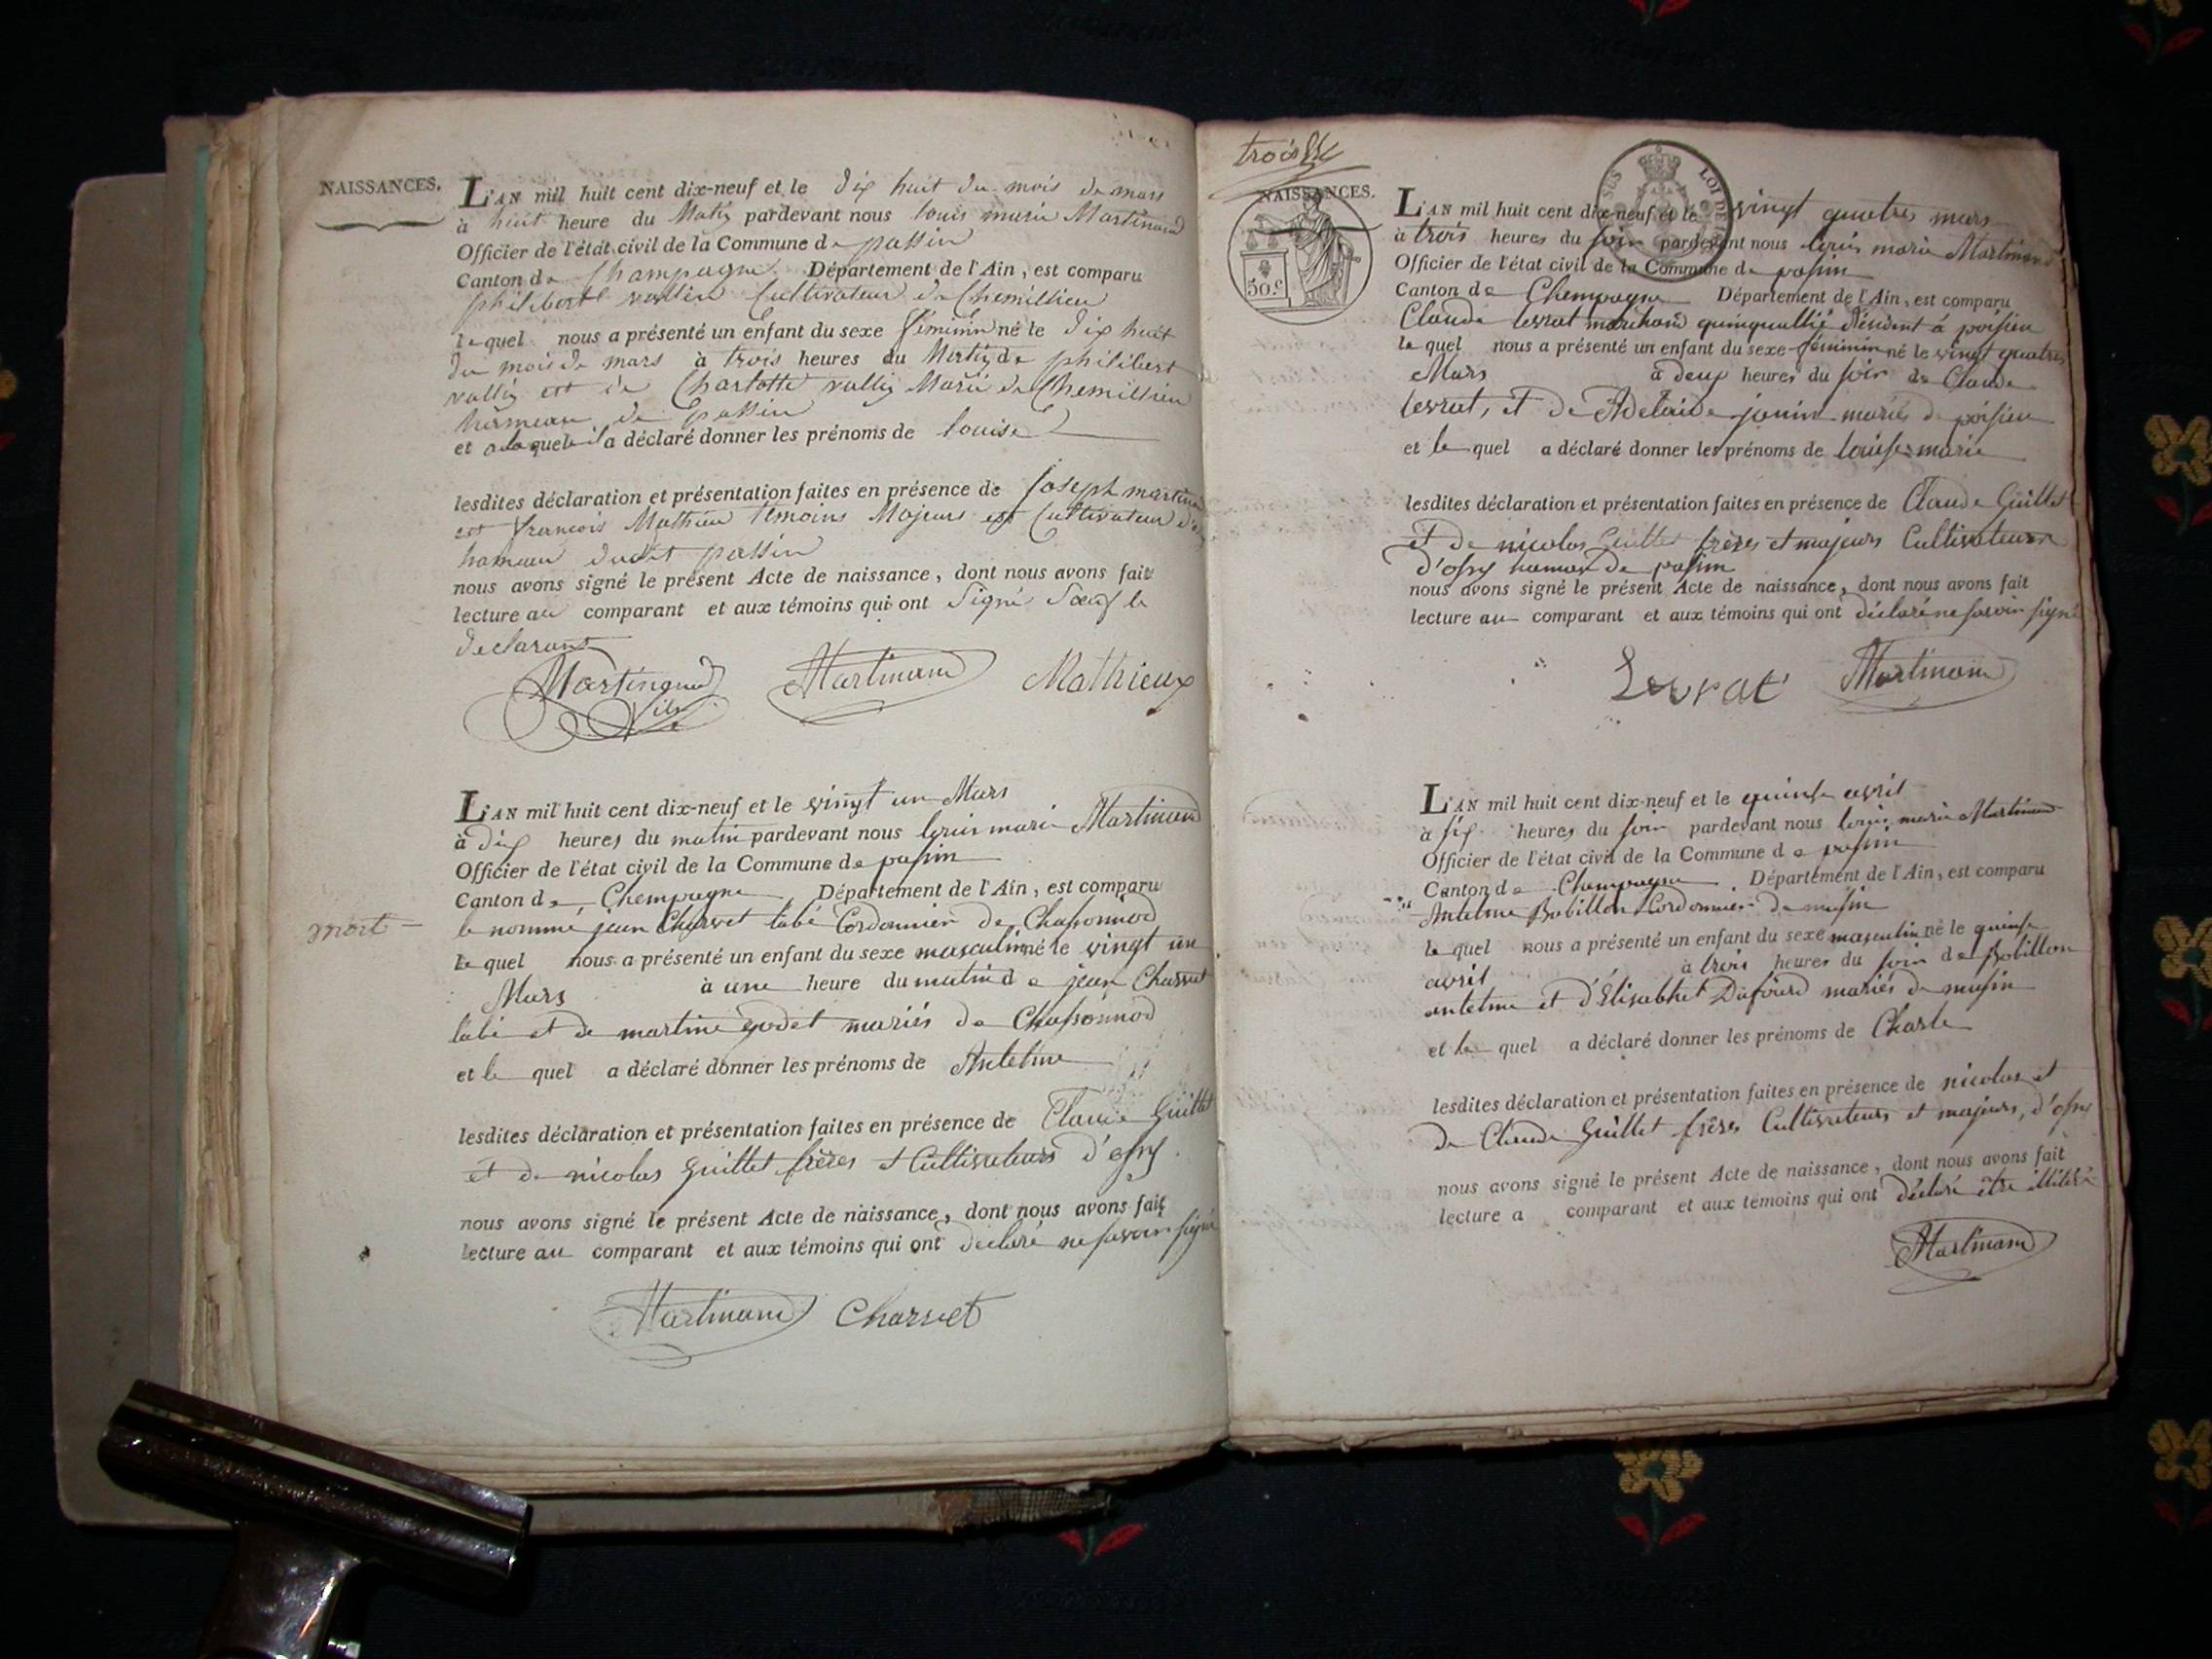 NAISSANCES.
L'AN mil huit cent dix-neuf et le dix huit du mois de mars
à huit heure du Matin pardevant nous louis marie Martinand
Officier de l'état civil de la Commune de passin
Canton de Champagne Département de l'Ain, est comparu
philibert vallin Cultivateur de Chemillieu
lequel nous a présenté un enfant du sexe féminin né le dix huit
du mois de mars à trois heures du Matin de philibert
vallin est de Charlotte vallin Marié de Chemillieu
hameau de passin
et a laquele il a déclaré donner les prénoms de louise
lesdites déclaration et présentation faites en présence de Joseph martinand
est francois Mathieu témoins Majeurs est Cultivateur
hameau dudit passin
nous avons signé le présent Acte de naissance, dont nous avons fait
lecture au comparant et aux témoins qui ont Signé Sauf le
declarant
Martinand Martinand Mathieux
L'AN mil huit cent dix-neuf et le vingt un Mars
à dix heures du matin pardevant nous louis marie Martinand
Officier de l'état civil de la Commune de passin
Canton de Chempagne Département de l'Ain, est comparu
mort
le nommé jean Charvet labé Cordonnier de Chassonnod
le quel nous a présenté un enfant du sexe masculin né le vingt un
Mars à une heure du matin de jean Charvet
labé et de martine godet mariés de Chassonnod
et le quel a déclaré donner les prénoms de Antelme
lesdites déclaration et présentation faites en présence de Claude Guillet
et de nicolas Guillet frères et Cultivateurs d'ossy
nous avons signé le présent Acte de naissance, dont nous avons fait
lecture au comparant et aux témoins qui ont déclaré ne savoir signé
Martinand Charvet
trois
NAISSANCES.
50.c
LOI DE
L'AN mil huit cent dix-neuf et le vingt quatres mars
à trois heures du soir pardevant nous louis marie Martinand
Officier de l'état civil de la Commune de passin
Canton de Chempagne Département de l'Ain, est comparu
Claude levrat marchand quinquallié résident à poisieu
le quel nous a présenté un enfant du sexe féminin né le vingt quatres
Mars à deux heures du soir de Claude
levrat, et de Adelaide janin mariés de poisieu
et le quel a déclaré donner les prénoms de louise marie
lesdites déclaration et présentation faites en présence de Claude Guillet
et de nicolas Guillet frères et majeurs Cultivateurs
d'ossy hameau de passin
nous avons signé le présent Acte de naissance, dont nous avons fait
lecture au comparant et aux témoins qui ont déclaré ne savoir signé
Levrat Martinand
L'AN mil huit cent dix-neuf et le quinse avril
à six heures du soir pardevant nous louis marie Martinand
Officier de l'état civil de la Commune de passin
Canton de Chempagne Département de l'Ain, est comparu
Antelme Bobillon Cordonnier de musin
le quel nous a présenté un enfant du sexe masculin né le quinse
avril à trois heures du soir de Bobillon
antelme et d'Elisabhet Dufourd mariés de musin
et le quel a déclaré donner les prénoms de Charle
lesdites déclaration et présentation faites en présence de nicolas et
de Claude Guillet frères Cultivateurs et majeurs, d'ossy
nous avons signé le présent Acte de naissance, dont nous avons fait
lecture a comparant et aux témoins qui ont déclaré être illitéré
Martinand